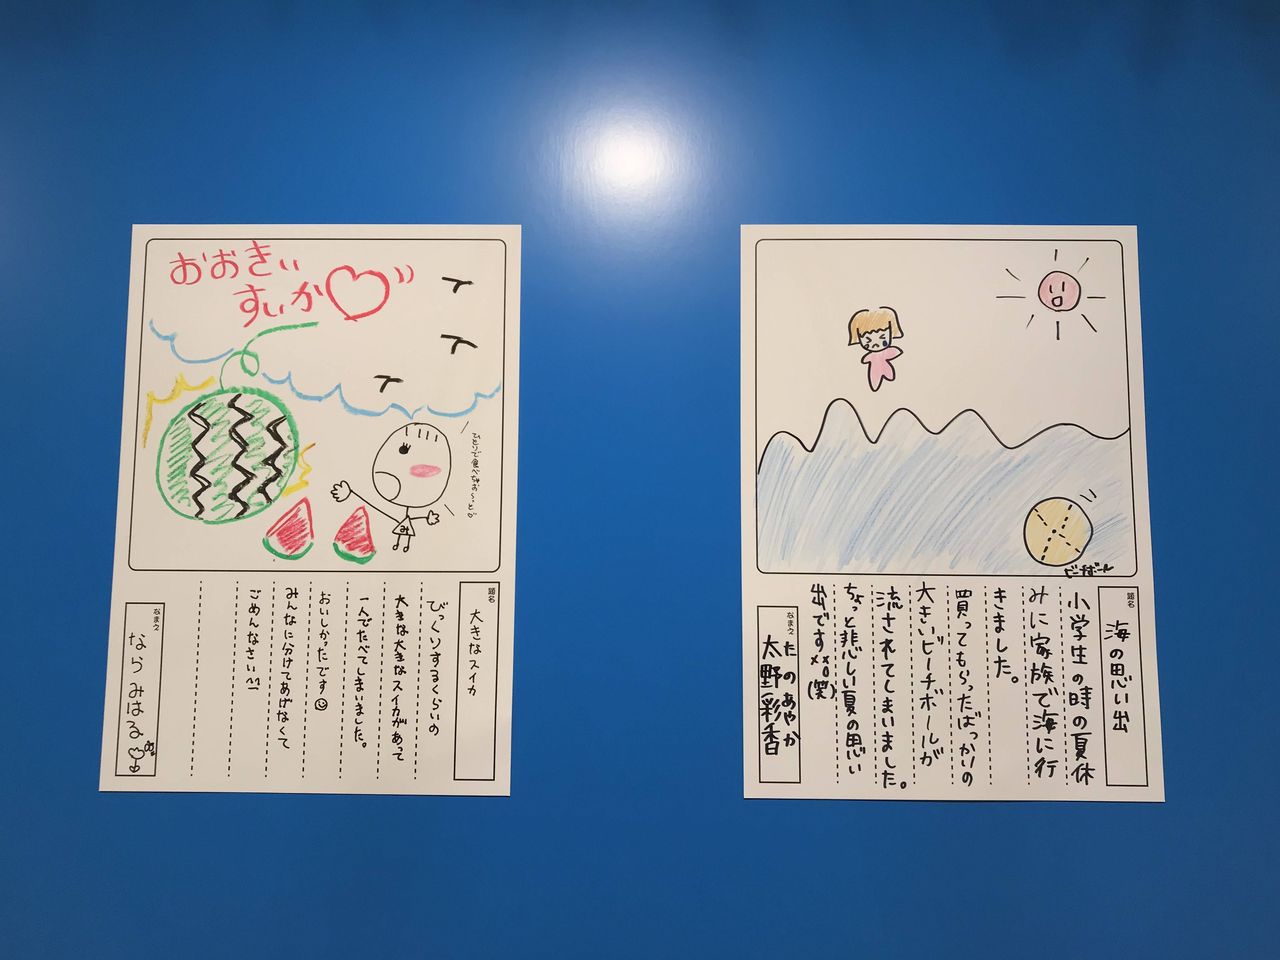 おおきぃ
すぃか
ひとりで食べちゃお〜っと
み
題名
大きなスイカ
びっくりするくらいの
大きな大きなスイカがあって
一人でたべてしまいました。
おいしかったです
みんなに分けてあげなくて
ごめんなさい
なまえ
なら みはる
ビーチボール
題名
海の思い出
小学生の時の夏休
みに家族で海に行
きました。
買ってもらったばっかりの
大きいビーチボールが
流されてしまいました。
ちょっと悲しい夏の思い
出です(笑)
なまえ
たのあやか
太野彩香